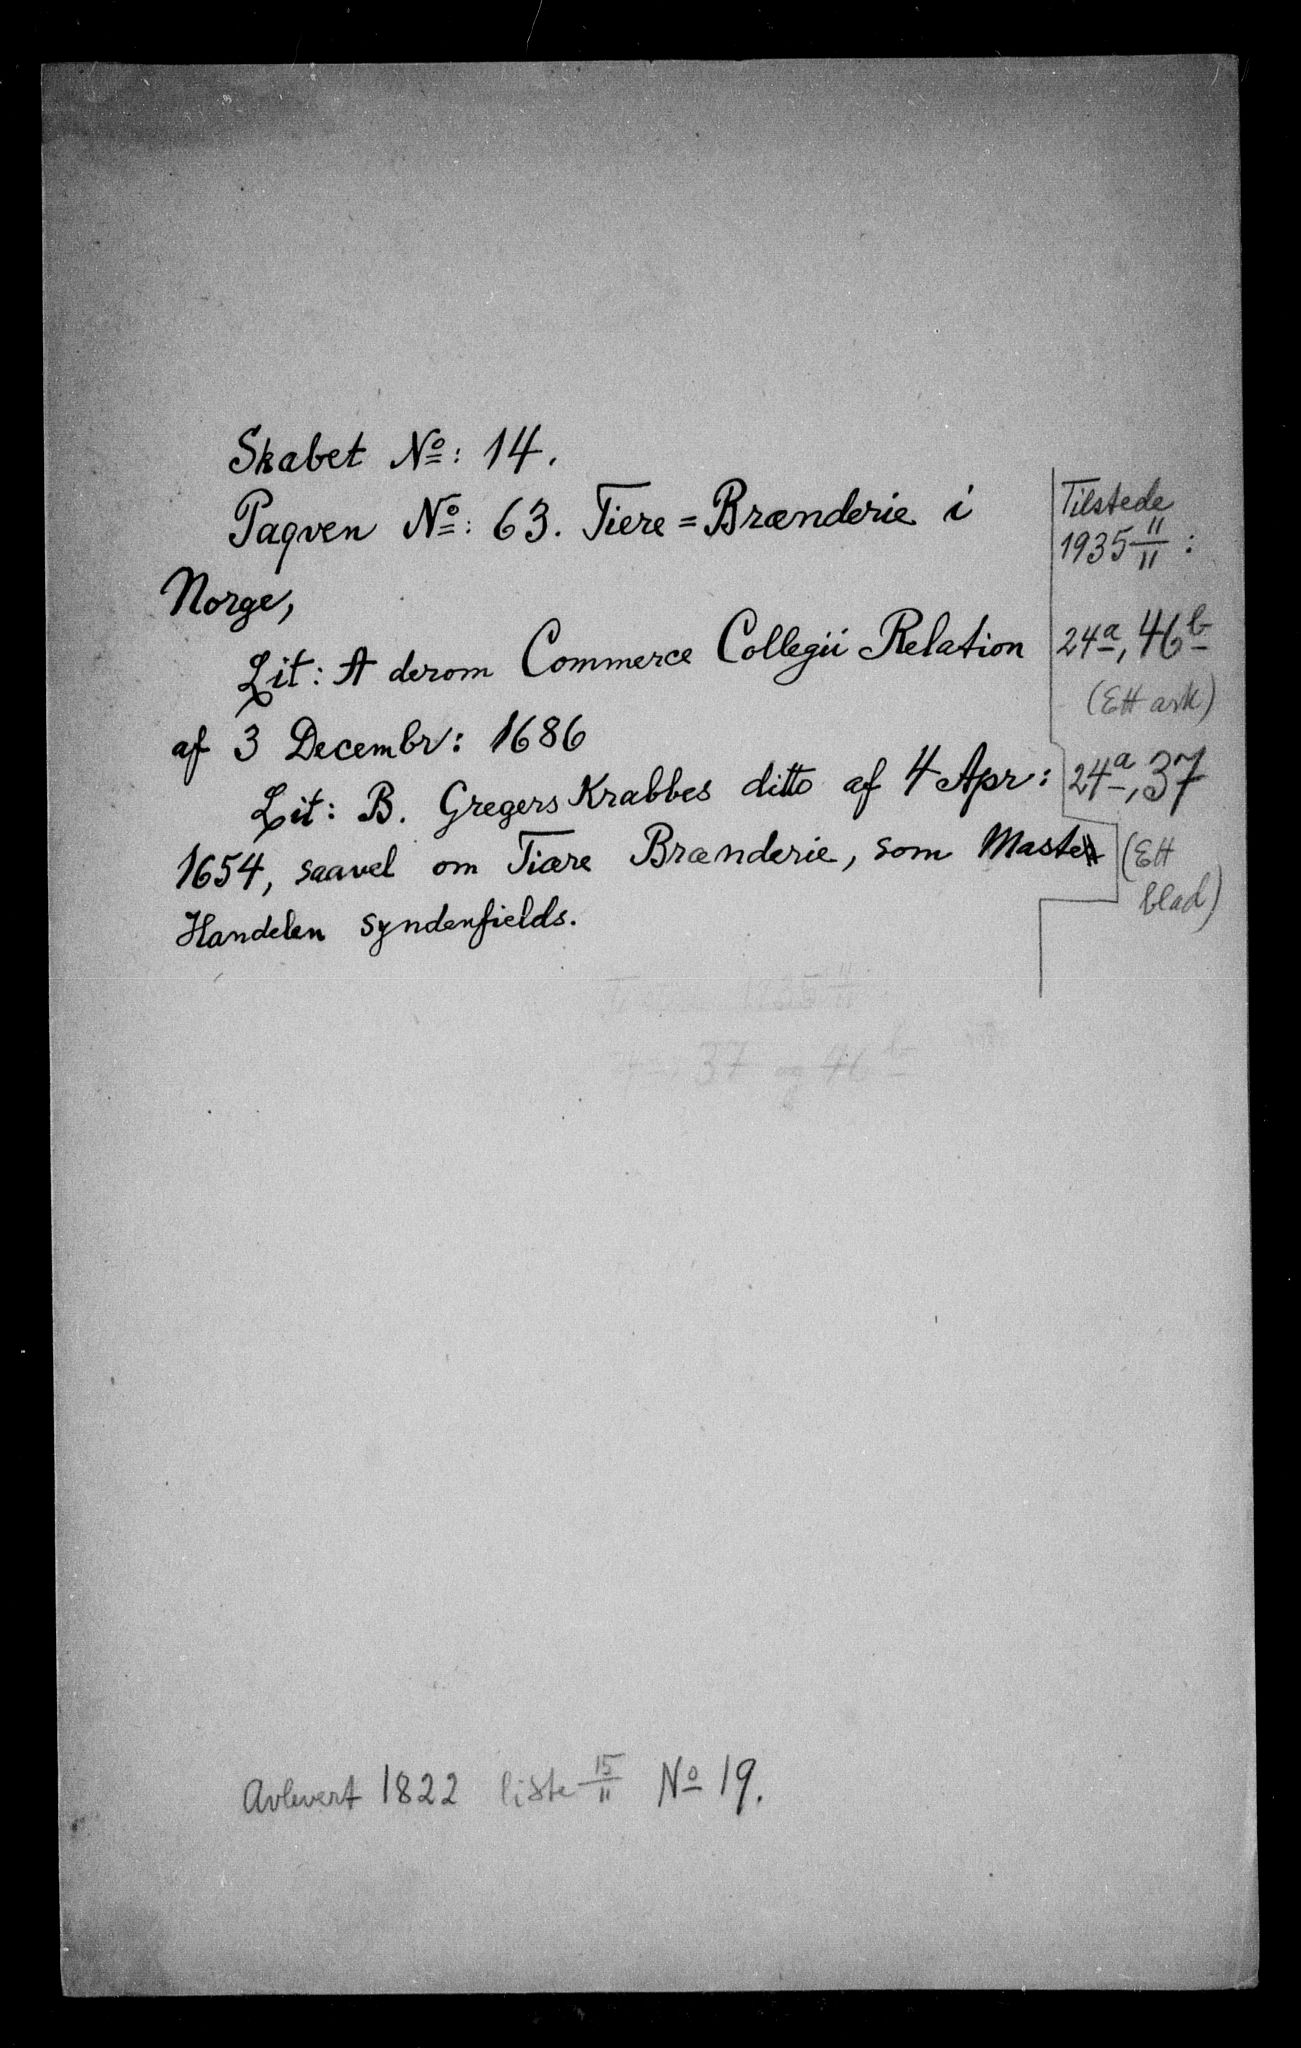 Skabet No: 14.
Paqven No: 63. Tiere=Brænderie i
Norge,
Lit: A derom Commerce Collegii Relation
af 3 Decembr: 1686
Lit: B. Gregers Krabbes ditto af 4 Apr:
1654, saavel om Tiære Brænderie, som Maste
Handelen syndenfields.
Tilstede
1935 11/11 :
24a, 46b
(Ett ark)
24a, 37
(Ett
blad)
1935 11/11
37 og 46b
Avlevert 1822 liste 15/11 No 19.